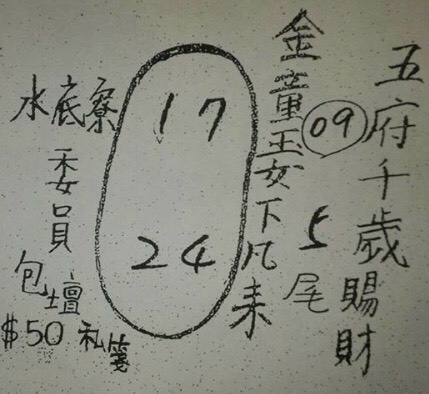 五府千歲賜財
09
5尾
金童玉女下凡來
17
24
水底寮
委員
包壇
$50 私箋